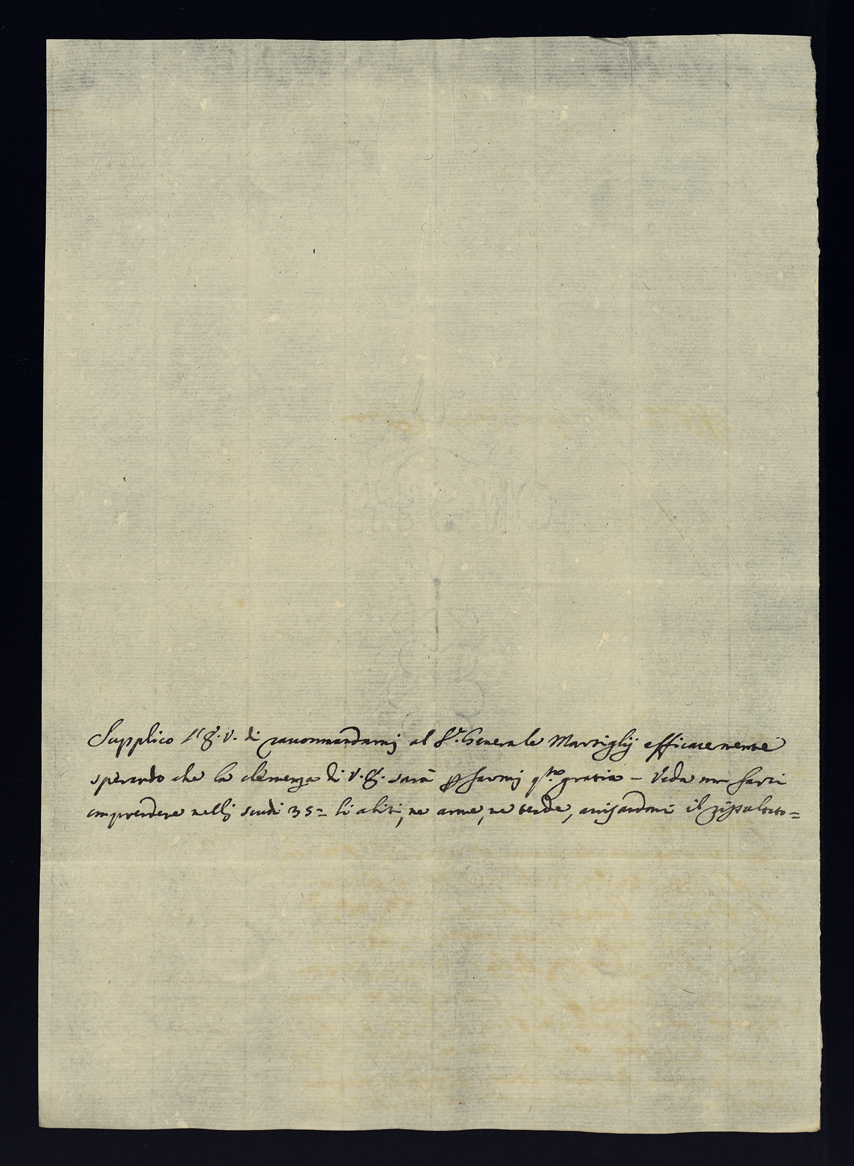 Supplico V. S. di raccomandarmj al Sr. Generale Marsiglij efficacemente
sperando che la clemenza di V. S. sarà per farmj qta. gratia – Veda me farci
comprendere nellj scudi 35= li abiti, ne arme, ne tende, avisandomi il